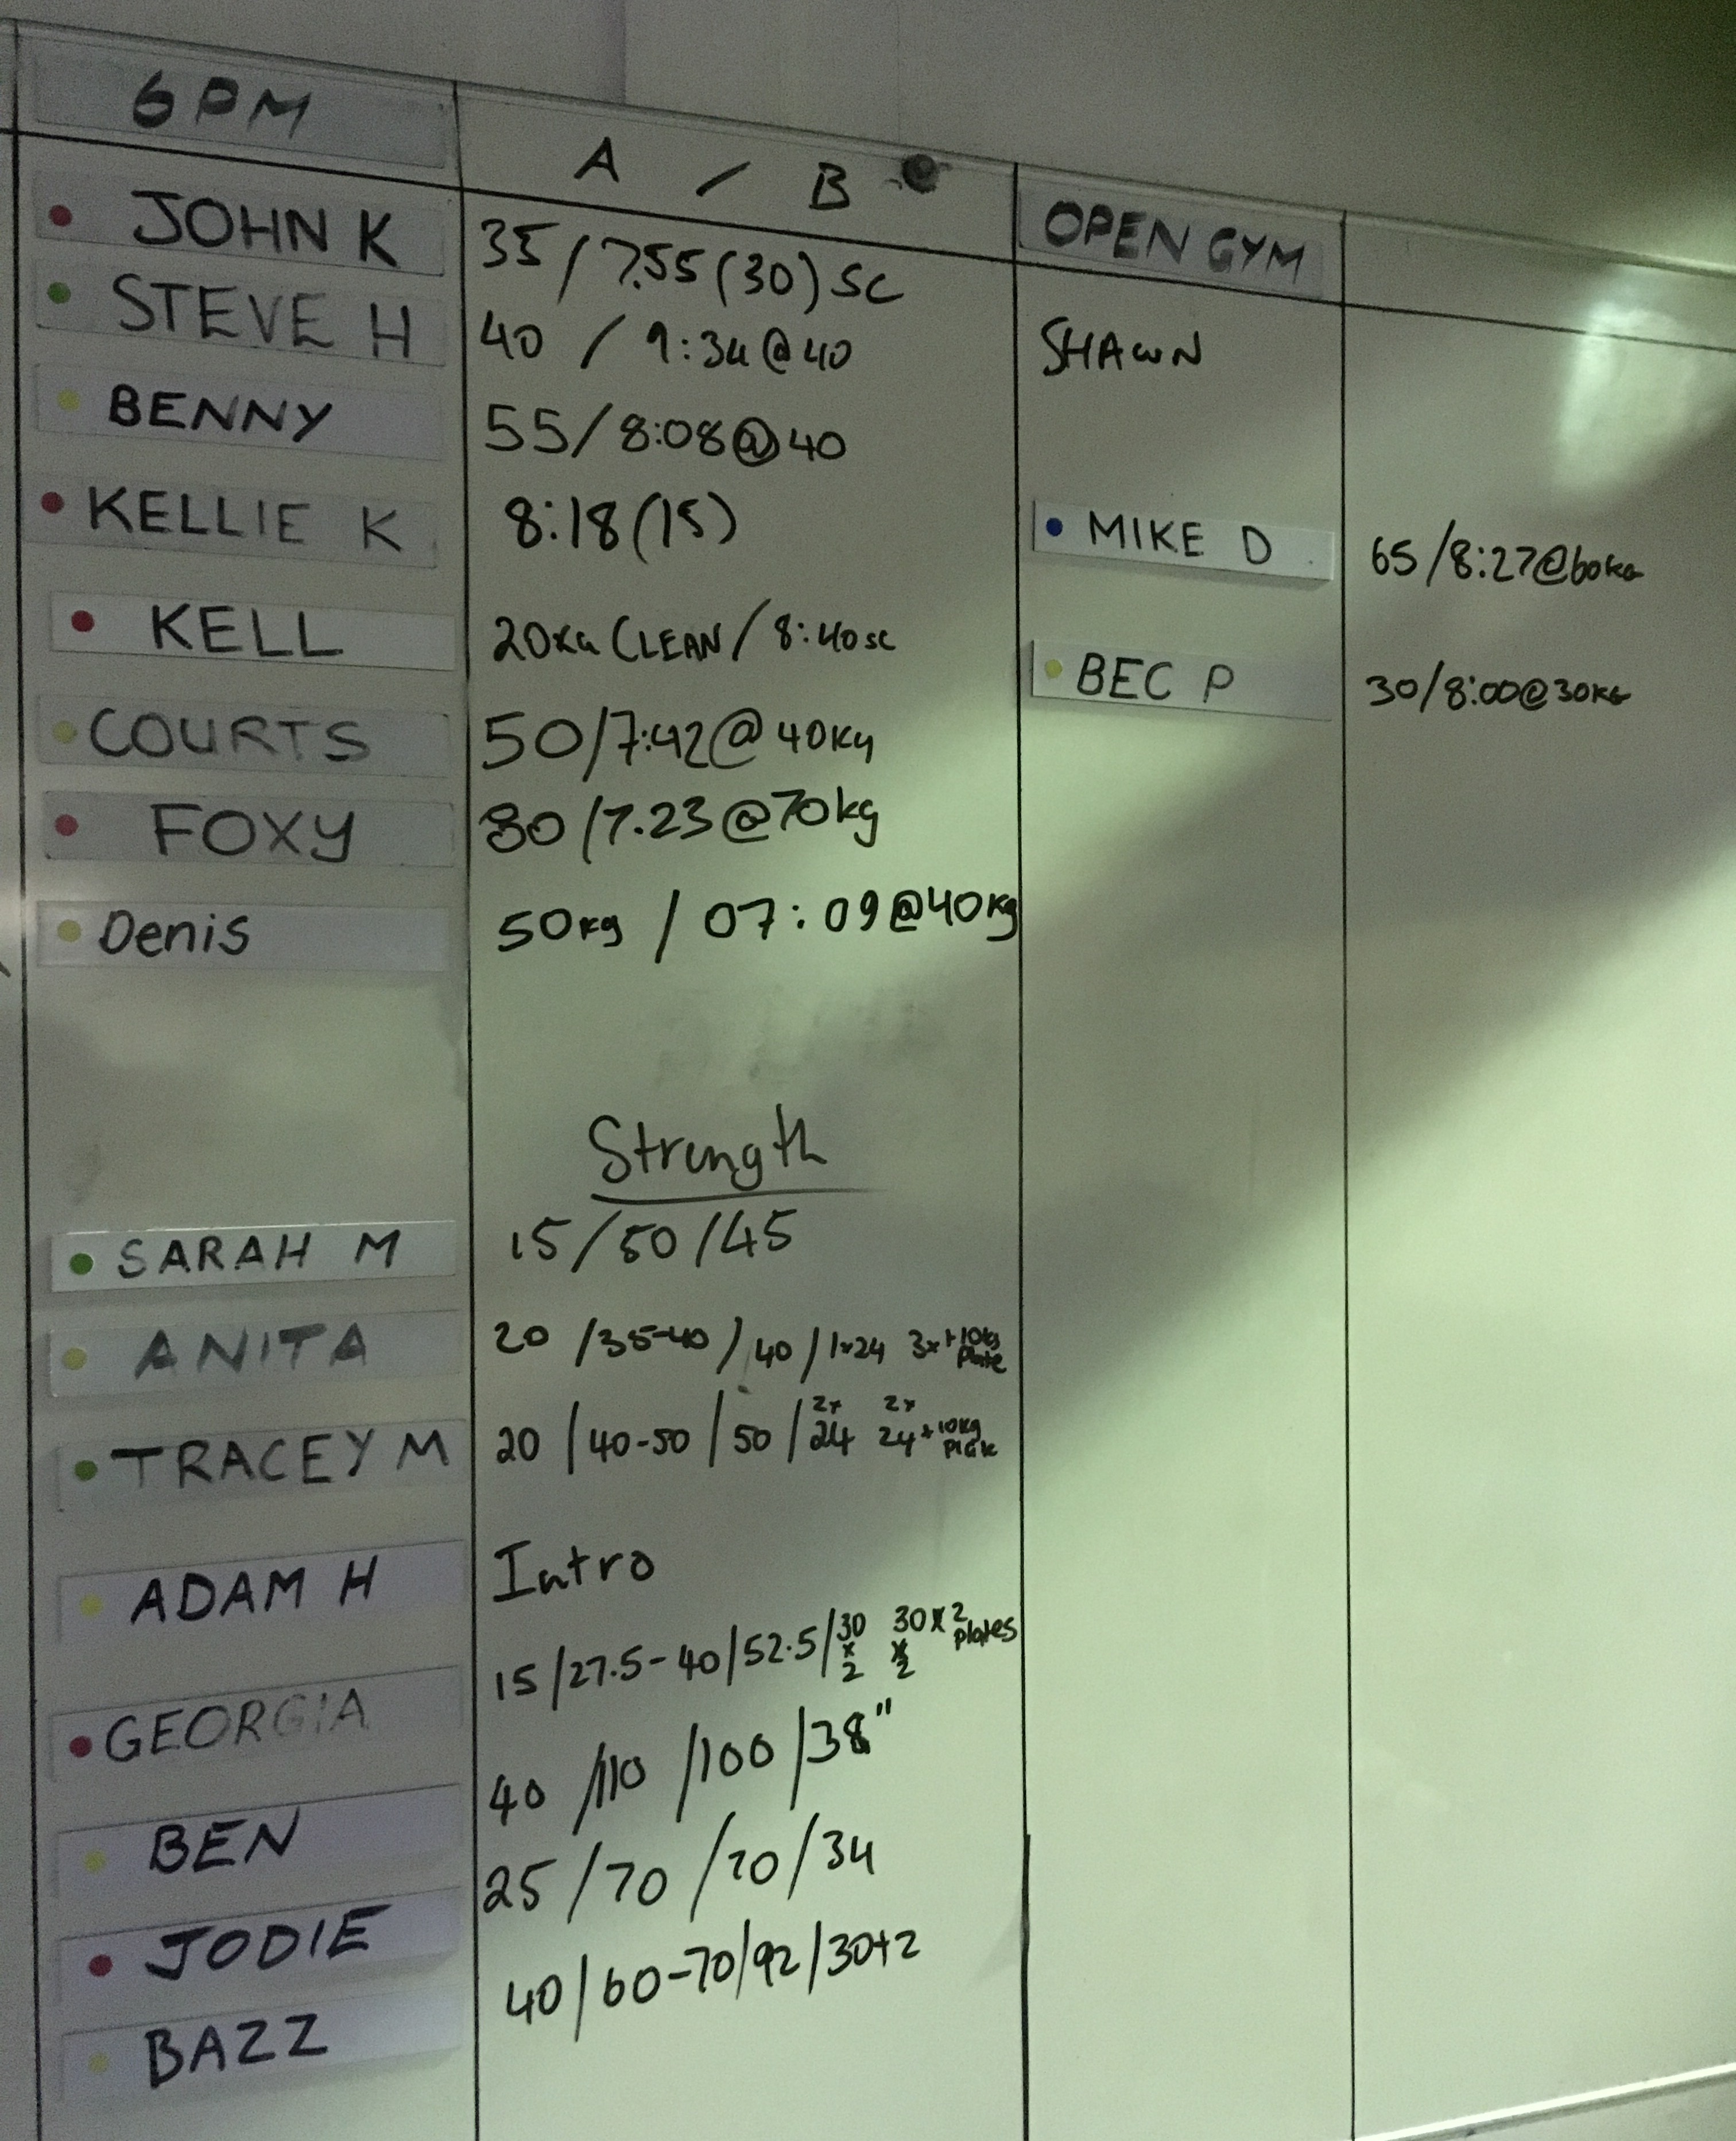 6PM
A / B
JOHN K 35/7.55(30) SC
STEVE H 40 / 9:34@40
BENNY 55/8:08@40
KELLIE K 8:18(15)
KELL 20KG CLEAN/ 8:40 SC
COURTS 50/7:42@40Kg
FOXY 80/7.23@70kg
Denis 50kg / 07:09@40kg
Strength
SARAH M 15/50/45
ANITA 20 /35-40/40/1x24 3x+10kg Plate
TRACEY M 20/40-50/50/2x 24 2x 24+10kg Plate
ADAM H Intro
GEORGIA 15/27.5-40/52.5/30 x 2 30 x 2 x2 plates
BEN 40/110/100/38"
JODIE 25/70/70/34
BAZZ 40/60-70/92/30+2
OPEN GYM
SHAWN
MIKE D 65/8:27@60KG
BEC P 30/8:00@30KG